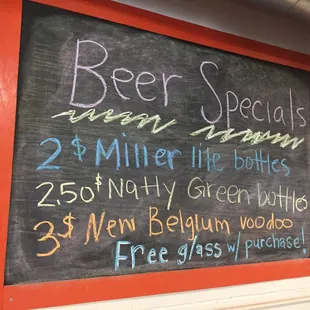 Beer Specials
2$ Miller lite bottles
2.50$ Natty Green bottles
3$ New Belgium voodoo
Free glass w/ purchase!